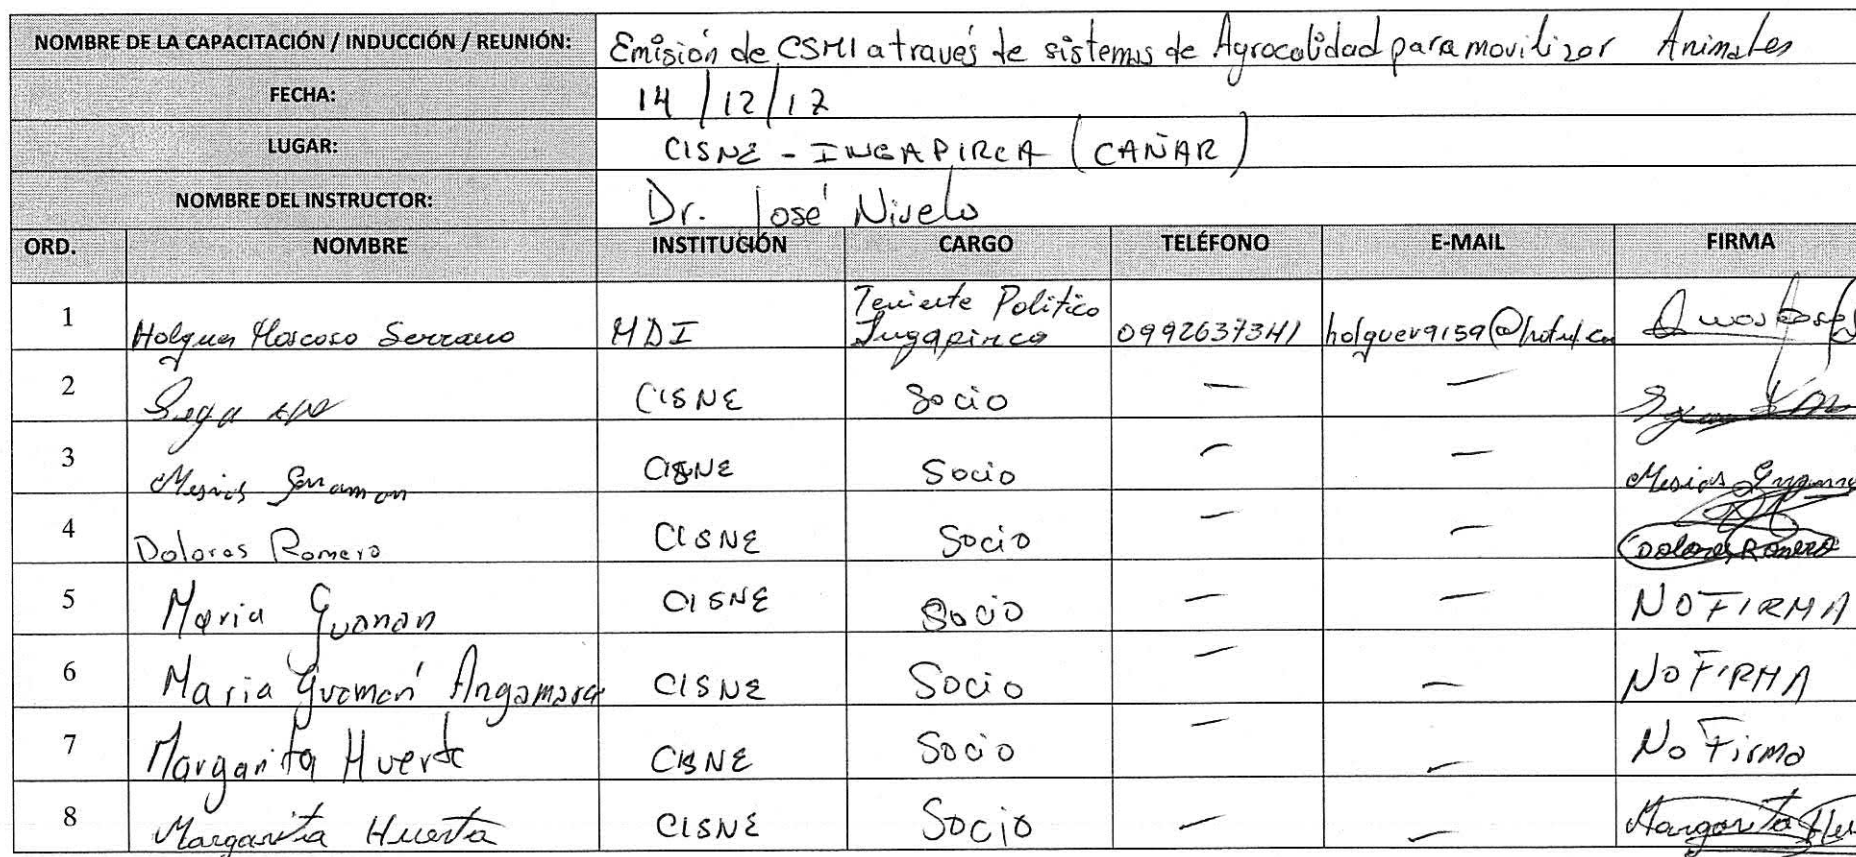 NOMBRE DE LA CAPACITACIÓN / INDUCCIÓN / REUNIÓN: Emisión de CSMI a través de sistemas de Agrocalidad para movilizar Animales
FECHA: 14/12/17
LUGAR: CISNE - INGAPIRCA (CAÑAR)
NOMBRE DEL INSTRUCTOR: Dr. José Nivelo
ORD. NOMBRE INSTITUCIÓN CARGO TELÉFONO E-MAIL FIRMA
1 Holguer Moscoso Serrano MDI Teniente Politico Ingapirca 0992637341
2 CISNE Socio — —
3 Mesias CISNE Socio — — Mesias
4 Dolores Romero CISNE Socio — — Dolores Romero
5 Maria Guaman CISNE Socio — — NO FIRMA
6 Maria Guamán Angamarca CISNE Socio — — NO FIRMA
7 Margarita Huerta CISNE Socio — — No Firma
8 Margarita Huerta CISNE Socio — — Margarita